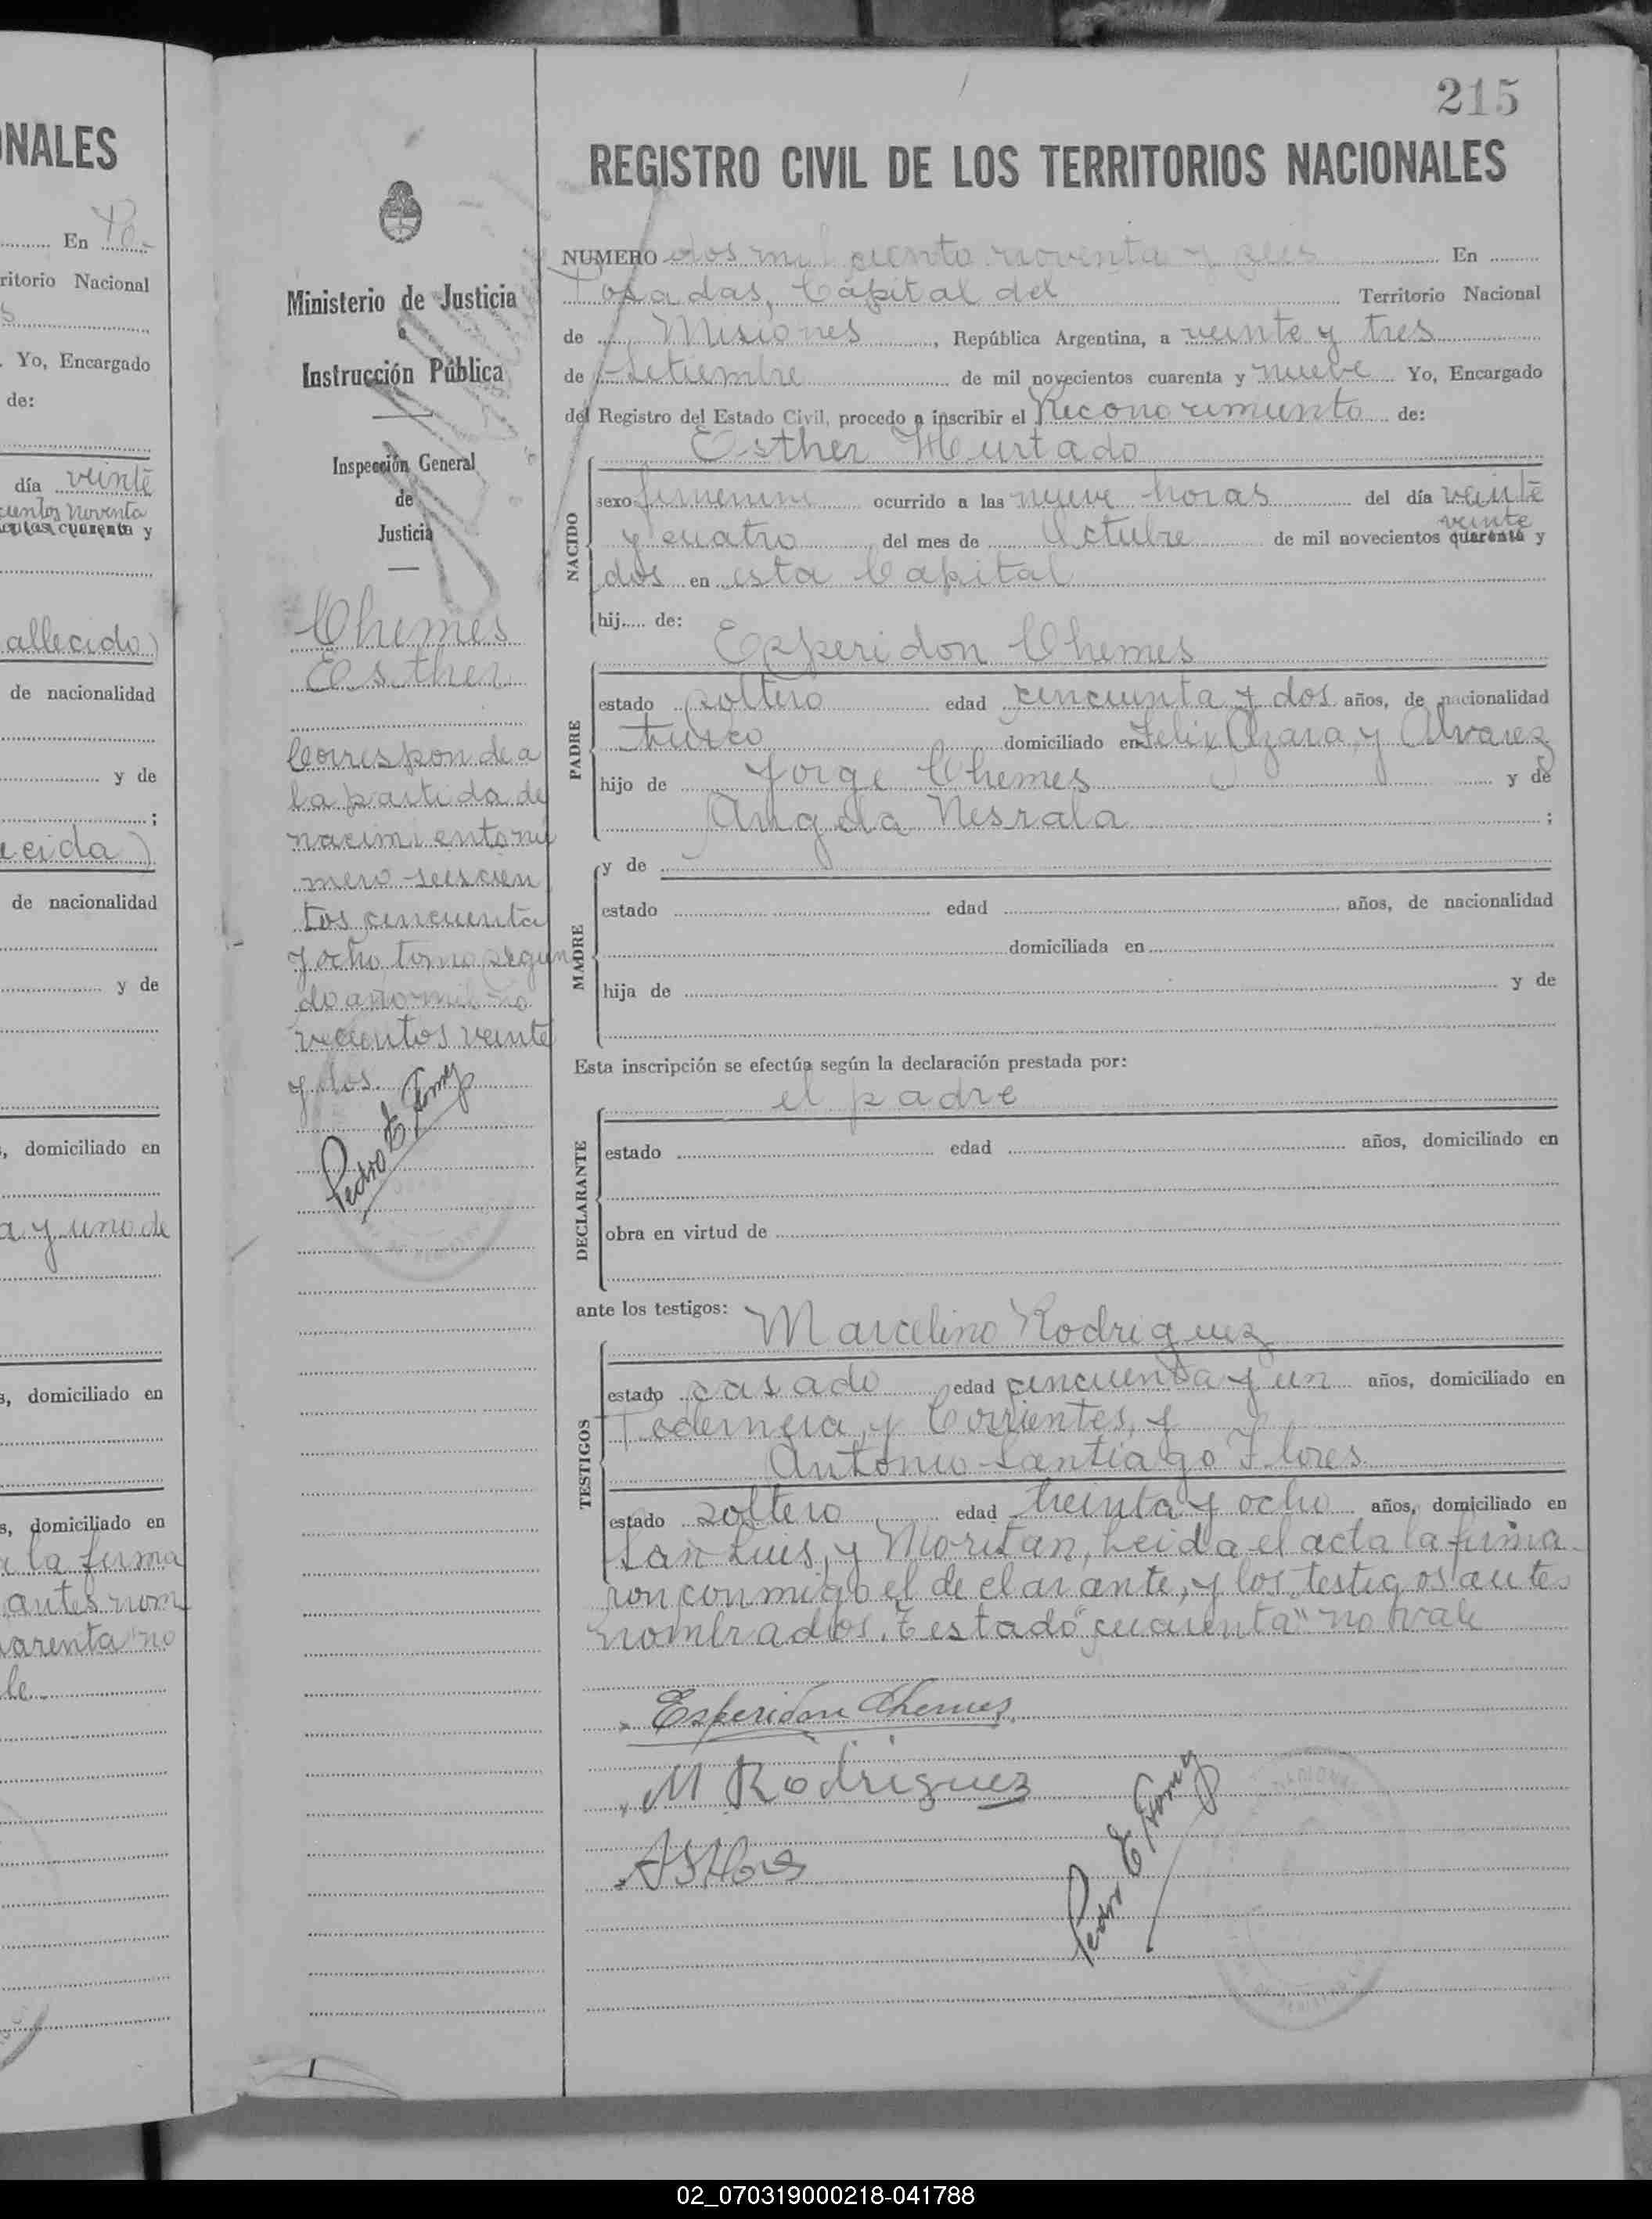 NALES
En Po-
ritorio Nacional
s
. Yo, Encargado
de:
día veinte
cientos noventa
cuarenta y
allecido)
de nacionalidad
y de
;
ecida)
de nacionalidad
y de
, domiciliado en
a y uno de
s, domiciliado en
s, domiciliado en
a la firma
antes nom
uarenta" no
le.
Ministerio de Justicia
e
Instrucción Pública
Inspección General
de
Justicia
Chemes
Esther
Corresponde a
la partida de
nacimiento nú
mero seiscien
tos cincuenta
y ocho, tomo segun
do año mil no
vecientos veinte
y dos.
215
REGISTRO CIVIL DE LOS TERRITORIOS NACIONALES
NUMERO dos mil ciento noventa y seis En
Posadas, Capital del Territorio Nacional
de Misiones, República Argentina, a veinte y tres
de Setiembre de mil novecientos cuarenta y nueve Yo, Encargado
del Registro del Estado Civil, procedo a inscribir el Reconocimiento de:
Esther Hurtado
NACIDO
sexo femenino ocurrido a las nueve horas del día veinte
veinte
y cuatro del mes de Octubre de mil novecientos cuarenta y
dos en esta Capital
hij..... de:
Esperidon Chemes
PADRE
estado soltero edad cincuenta y dos años, de nacionalidad
turco domiciliado en Felix Azara y Alvarez
hijo de Jorge Chemes y de
Angela Nesrala ;
MADRE
y de
estado edad años, de nacionalidad
domiciliada en
hija de y de
Esta inscripción se efectúa según la declaración prestada por:
el padre
DECLARANTE
estado edad años, domiciliado en
obra en virtud de
ante los testigos:
Marcelino Rodriguez
TESTIGOS
estado casado edad cincuenta y un años, domiciliado en
y Corrientes, y
Antonio Santiago Flores
estado soltero edad treinta y ocho años, domiciliado en
San Luis, y Moritan, Leida el acta la firma-
ron conmigo el declarante, y los testigos antes
nombrados. Testado "cuarenta" no vale
Esperidon Chemes
M Rodriguez
02_070319000218-041788